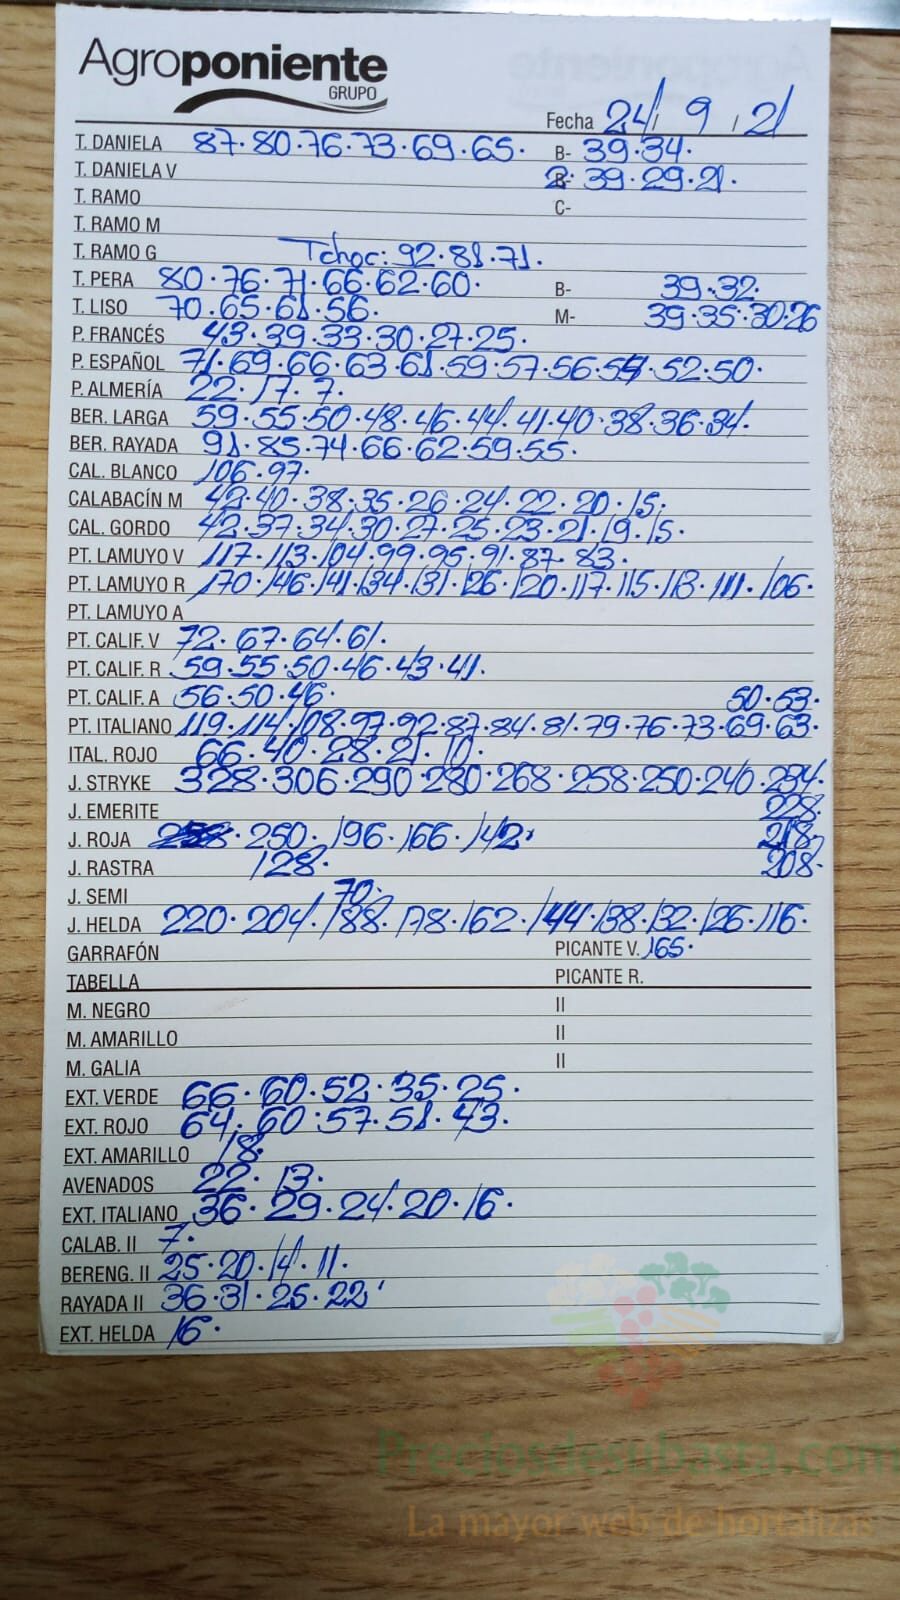 Agroponiente
GRUPO
Fecha 24/ 9 / 21
T. DANIELA 87·80·76·73·69·65· B- 39·34·
T. DANIELA V 2· 39·29·21·
T. RAMO C-
T. RAMO M
T. RAMO G Tchoc: 92·81·71·
T. PERA 80·76·71·66·62·60· B- 39·32·
T. LISO 70·65·61·56· M- 39·35·30·26
P. FRANCÉS 43·39·33·30·27·25·
P. ESPAÑOL 71·69·66·63·61·59·57·56·54·52·50·
P. ALMERÍA 22·17·7·
BER. LARGA 59·55·50·48·46·44·41·40·38·36·34·
BER. RAYADA 91·85·74·66·62·59·55·
CAL. BLANCO 106·97·
CALABACÍN M 42·40·38·35·26·24·22·20·15·
CAL. GORDO 42·37·34·30·27·25·23·21·19·15·
PT. LAMUYO V 117·113·104·99·95·91·87·83·
PT. LAMUYO R 170·146·141·134·131·126·120·117·115·113·111·106·
PT. LAMUYO A
PT. CALIF. V 72·67·64·61·
PT. CALIF. R 59·55·50·46·43·41·
PT. CALIF. A 56·50·46· 50·53·
PT. ITALIANO 119·114·108·97·92·87·84·81·79·76·73·69·63·
ITAL. ROJO 66·40·28·21·10·
J. STRYKE 328·306·290·280·268·258·250·240·234·
J. EMERITE 228·
J. ROJA 250·196·166·142· 218·
J. RASTRA 128· 208·
J. SEMI 70·
J. HELDA 220·204·188·178·162·144·138·132·126·116·
GARRAFÓN PICANTE V. 165·
TABELLA PICANTE R.
M. NEGRO II
M. AMARILLO II
M. GALIA II
EXT. VERDE 66·60·52·35·25·
EXT. ROJO 64·60·57·51·43·
EXT. AMARILLO 18·
AVENADOS 22·13·
EXT. ITALIANO 36·29·24·20·16·
CALAB. II 7·
BERENG. II 25·20·14·11·
RAYADA II 36·31·25·22·
EXT. HELDA 16·
Preciosdesubasta.com
La mayor web de hortalizas